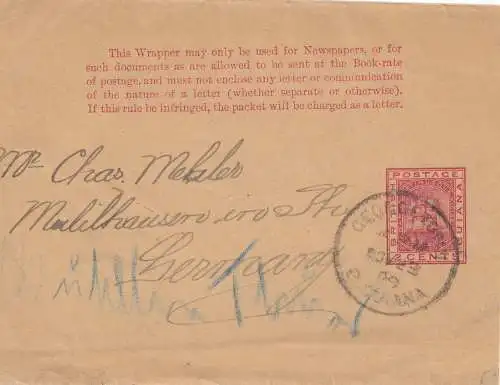 This Wrapper may only be used for Newspapers, or for
such documents as are allowed to be sent at the Book-rate
of postage, and must not enclose any letter or communication
of the nature of a letter (whether separate or otherwise).
If this rule be infringed, the packet will be charged as a letter.
Mr Chas. Metzler
Mulilhausen in Th
Germany
POSTAGE
BRITISH
GUIANA
CENT